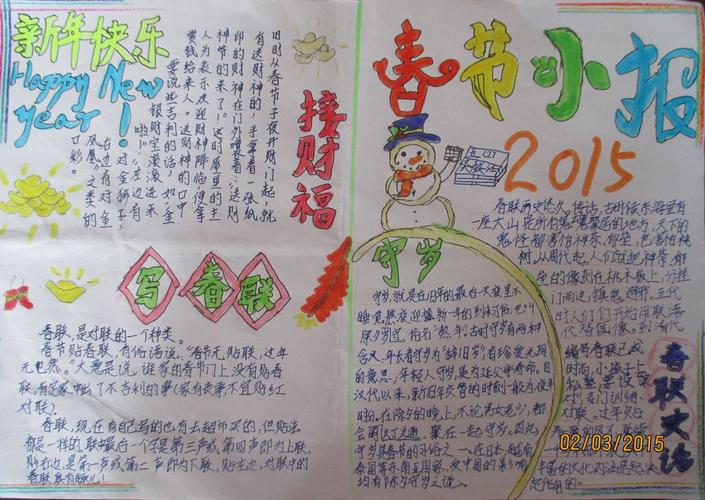 新年快乐
Happy New
year!
接财福
旧时从春节子夜开财门起，就
有送财神的，手拿着一张纸
印的财神在门外嚷着：送财
神爷的来了！这时屋里的主
人为表示欢迎财神降临便拿
赏钱给来人。送财神的口中
要说些吉利的话，如金
银财宝滚滚进来
啦！左边
对金狮子，
右边有对金
凤凰之类的
口彩。
写春联
春联，是对联的一个种类。
春节贴春联，有俗语说："春节无贴联，过年
无也然。"大意是说，谁家的春节门上没有贴春
联，肯定家中出了不吉利的事（家有丧事不宜贴红
对联）。
春联，现在有自己写的也有去超市买的，但贴法
都是一样的，联最后一个字是第三声或第四声即为上联，
贴右边，是第一声或第二声即为下联，贴左边。对联中的
春节小报
2015
守岁
守岁，就是在旧年的最后一天夜里不
睡觉，熬夜迎接新一年的到来的习俗，也叫
除夕守岁，俗名"熬年"。古时守岁有两种
含义：年长者守岁为"辞旧岁"，有珍爱光阴
的意思；年轻人守岁，是为延父母寿命。自
汉代以来，新旧年交替的时刻一般为夜半
时分。在除夕的晚上，不论男女老少，都
会灯火通明，聚在一起守岁。因此
守岁是春节的习俗之一。在日本、越南
泰国等东南亚国家，受中国的影响
均有除夕守岁之说。
春联历史悠久，传说，古时候东海里有
一座大山是所有鬼魂聚居的地方，天下的
鬼怪都害怕神荼、郁垒，也害怕桃
树，从周代起，人们就把神荼、郁
垒的像刻在桃木板上，分挂
门两边，镇鬼避邪。五代
时人们开始用联语
代替画像。到清代
编写春联已成
时尚，小孩子上
私塾要设
对对专门训练
对联。过年贴
春联文话
02/03/2015